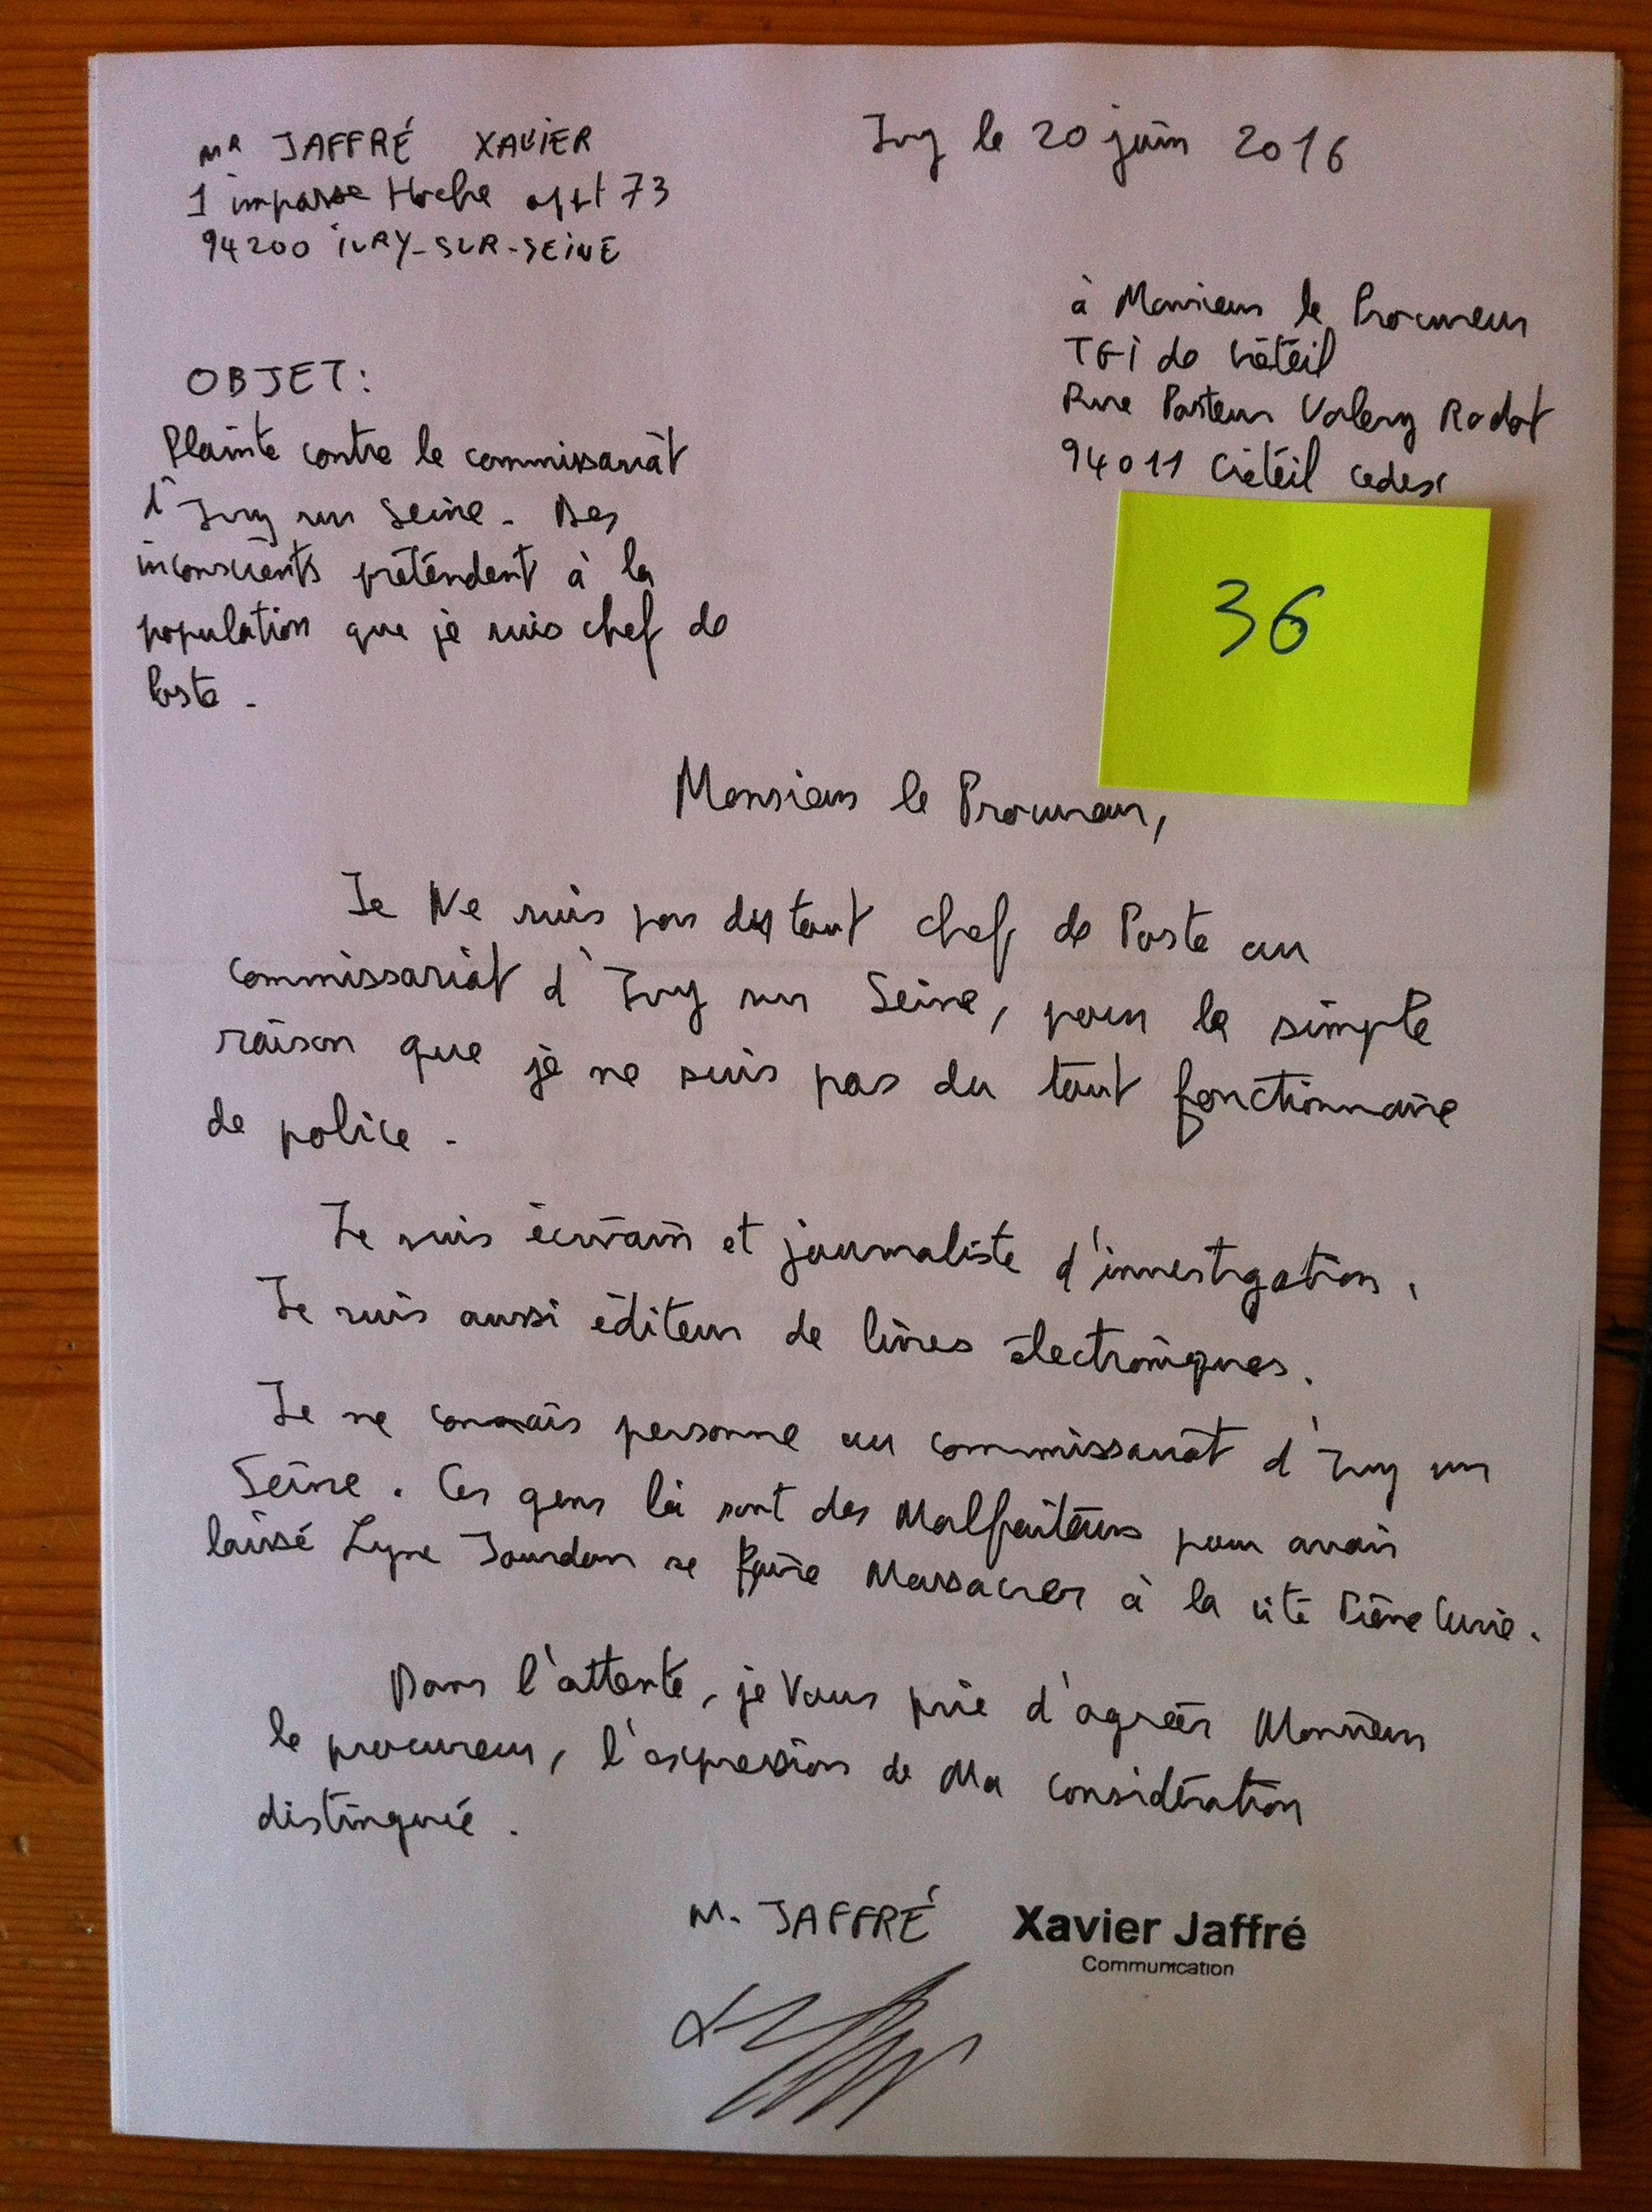 Mr JAFFRÉ XAVIER
1 impasse Hoche appt 73
94200 IVRY-SUR-SEINE
Ivry le 20 juin 2016
à Monsieur le Procureur
TGI de Créteil
Rue Pasteur Valery Radot
94011 Créteil cedex
OBJET:
Plainte contre le commissariat
d'Ivry sur Seine. Des
inconscients prétendent à la
population que je suis chef de
Poste.
36
Monsieur le Procureur,
Je Ne suis pas du tout chef de Poste au
commissariat d'Ivry sur Seine, pour la simple
raison que je ne suis pas du tout fonctionnaire
de police.
Je suis écrivain et journaliste d'investigation.
Je suis aussi éditeur de livres électroniques.
Je ne connais personne au commissariat d'Ivry sur
Seine. Ces gens là sont des Malfaiteurs pour avoir
laissé Lyne Jourdan se faire Massacrer à la cité Pierre Curie.
Dans l'attente, je Vous prie d'agréer Monsieur
le procureur, l'expression de Ma considération
distinguée.
M. JAFFRÉ
Xavier Jaffré
Communication